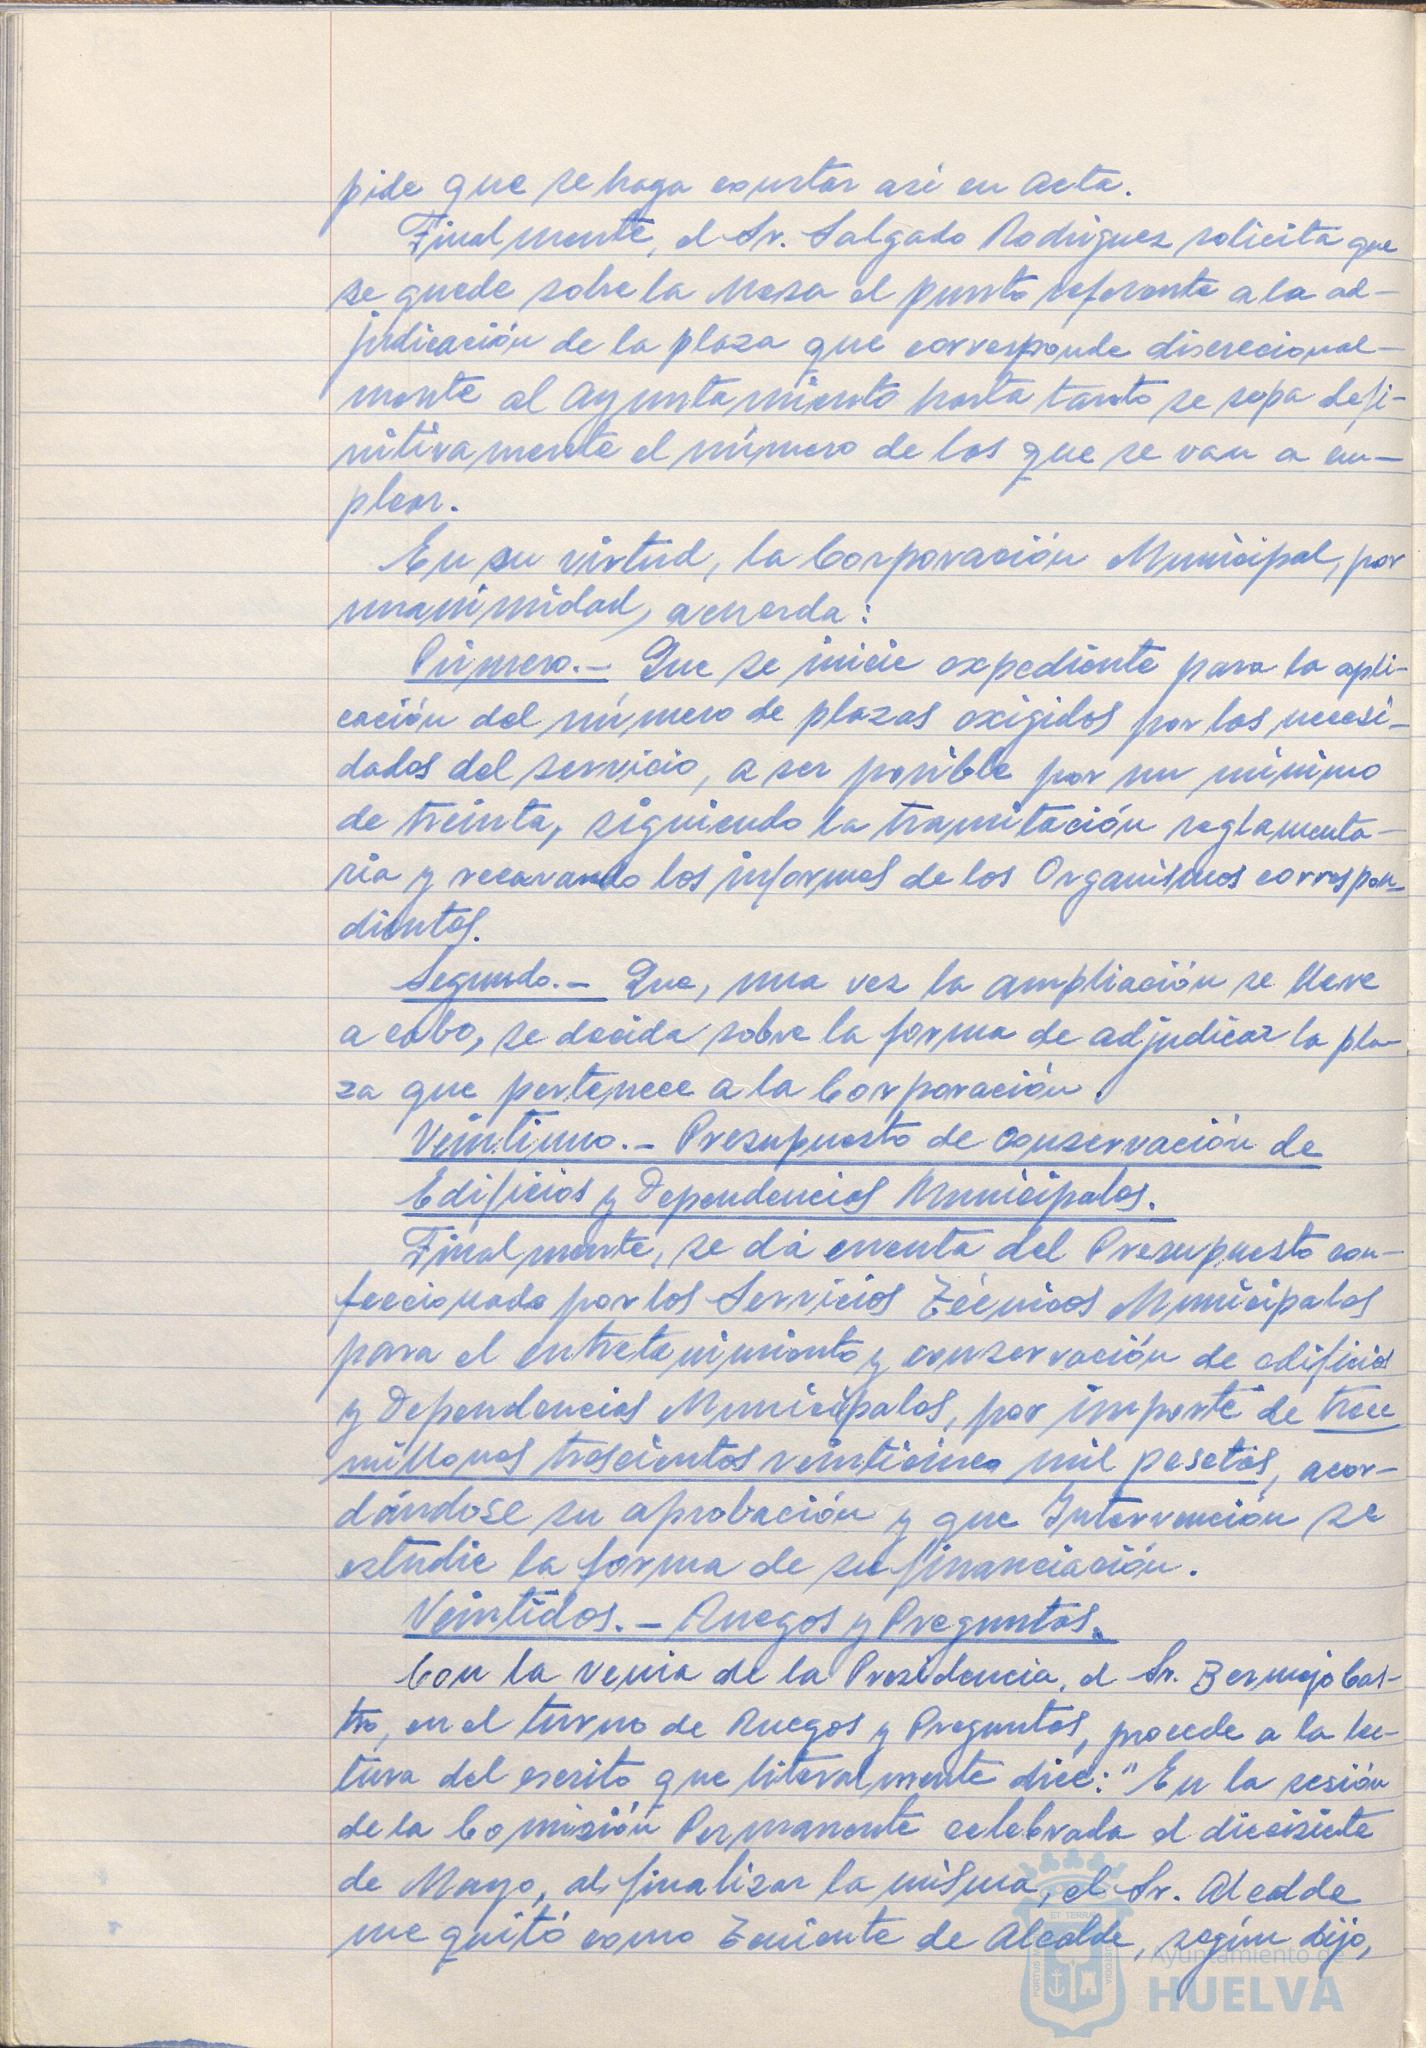 pide que se haga constar así en Acta.
Finalmente, el Sr. Salgado Rodriguez solicita que
se quede sobre la Mesa el punto referente a la ad-
judicación de la plaza que corresponde discrecional-
mente al Ayuntamiento hasta tanto se sepa defi-
nitivamente el número de las que se van a am-
pliar.
En su virtud, la Corporación Municipal, por
unanimidad, acuerda:
Primero.- Que se inicie expediente para la apli-
cación del número de plazas exigidos por las necesi-
dades del servicio, a ser posible por un mínimo
de treinta, siguiendo la tramitación reglamenta-
ria y recavando los informes de los Organismos correspon-
dientes.
Segundo.- Que, una vez la ampliación se lleve
a cabo, se decida sobre la forma de adjudicar la pla-
za que pertenece a la Corporación.
Veintiuno.- Presupuesto de conservación de
Edificios y Dependencias Municipales.
Finalmente, se dá cuenta del Presupuesto con-
feccionado por los Servicios Técnicos Municipales
para el entretenimiento y conservación de edificios
y Dependencias Municipales, por importe de trece
millones trescientas veinticinco mil pesetas, acor-
dándose su aprobación y que Intervención se
estudie la forma de su financiación.
Veintidos.- Ruegos y Preguntas.
Con la venia de la Presidencia, el Sr. Bermejo Cas-
tro, en el turno de Ruegos y Preguntas, procede a la lec-
tura del escrito que literalmente dice: "En la sesión
de la Comisión Permanente celebrada el diecisiete
de Mayo, al finalizar la misma, el Sr. Alcalde
me quitó como Teniente de Alcalde, según dijo,
Ayuntamiento de
HUELVA